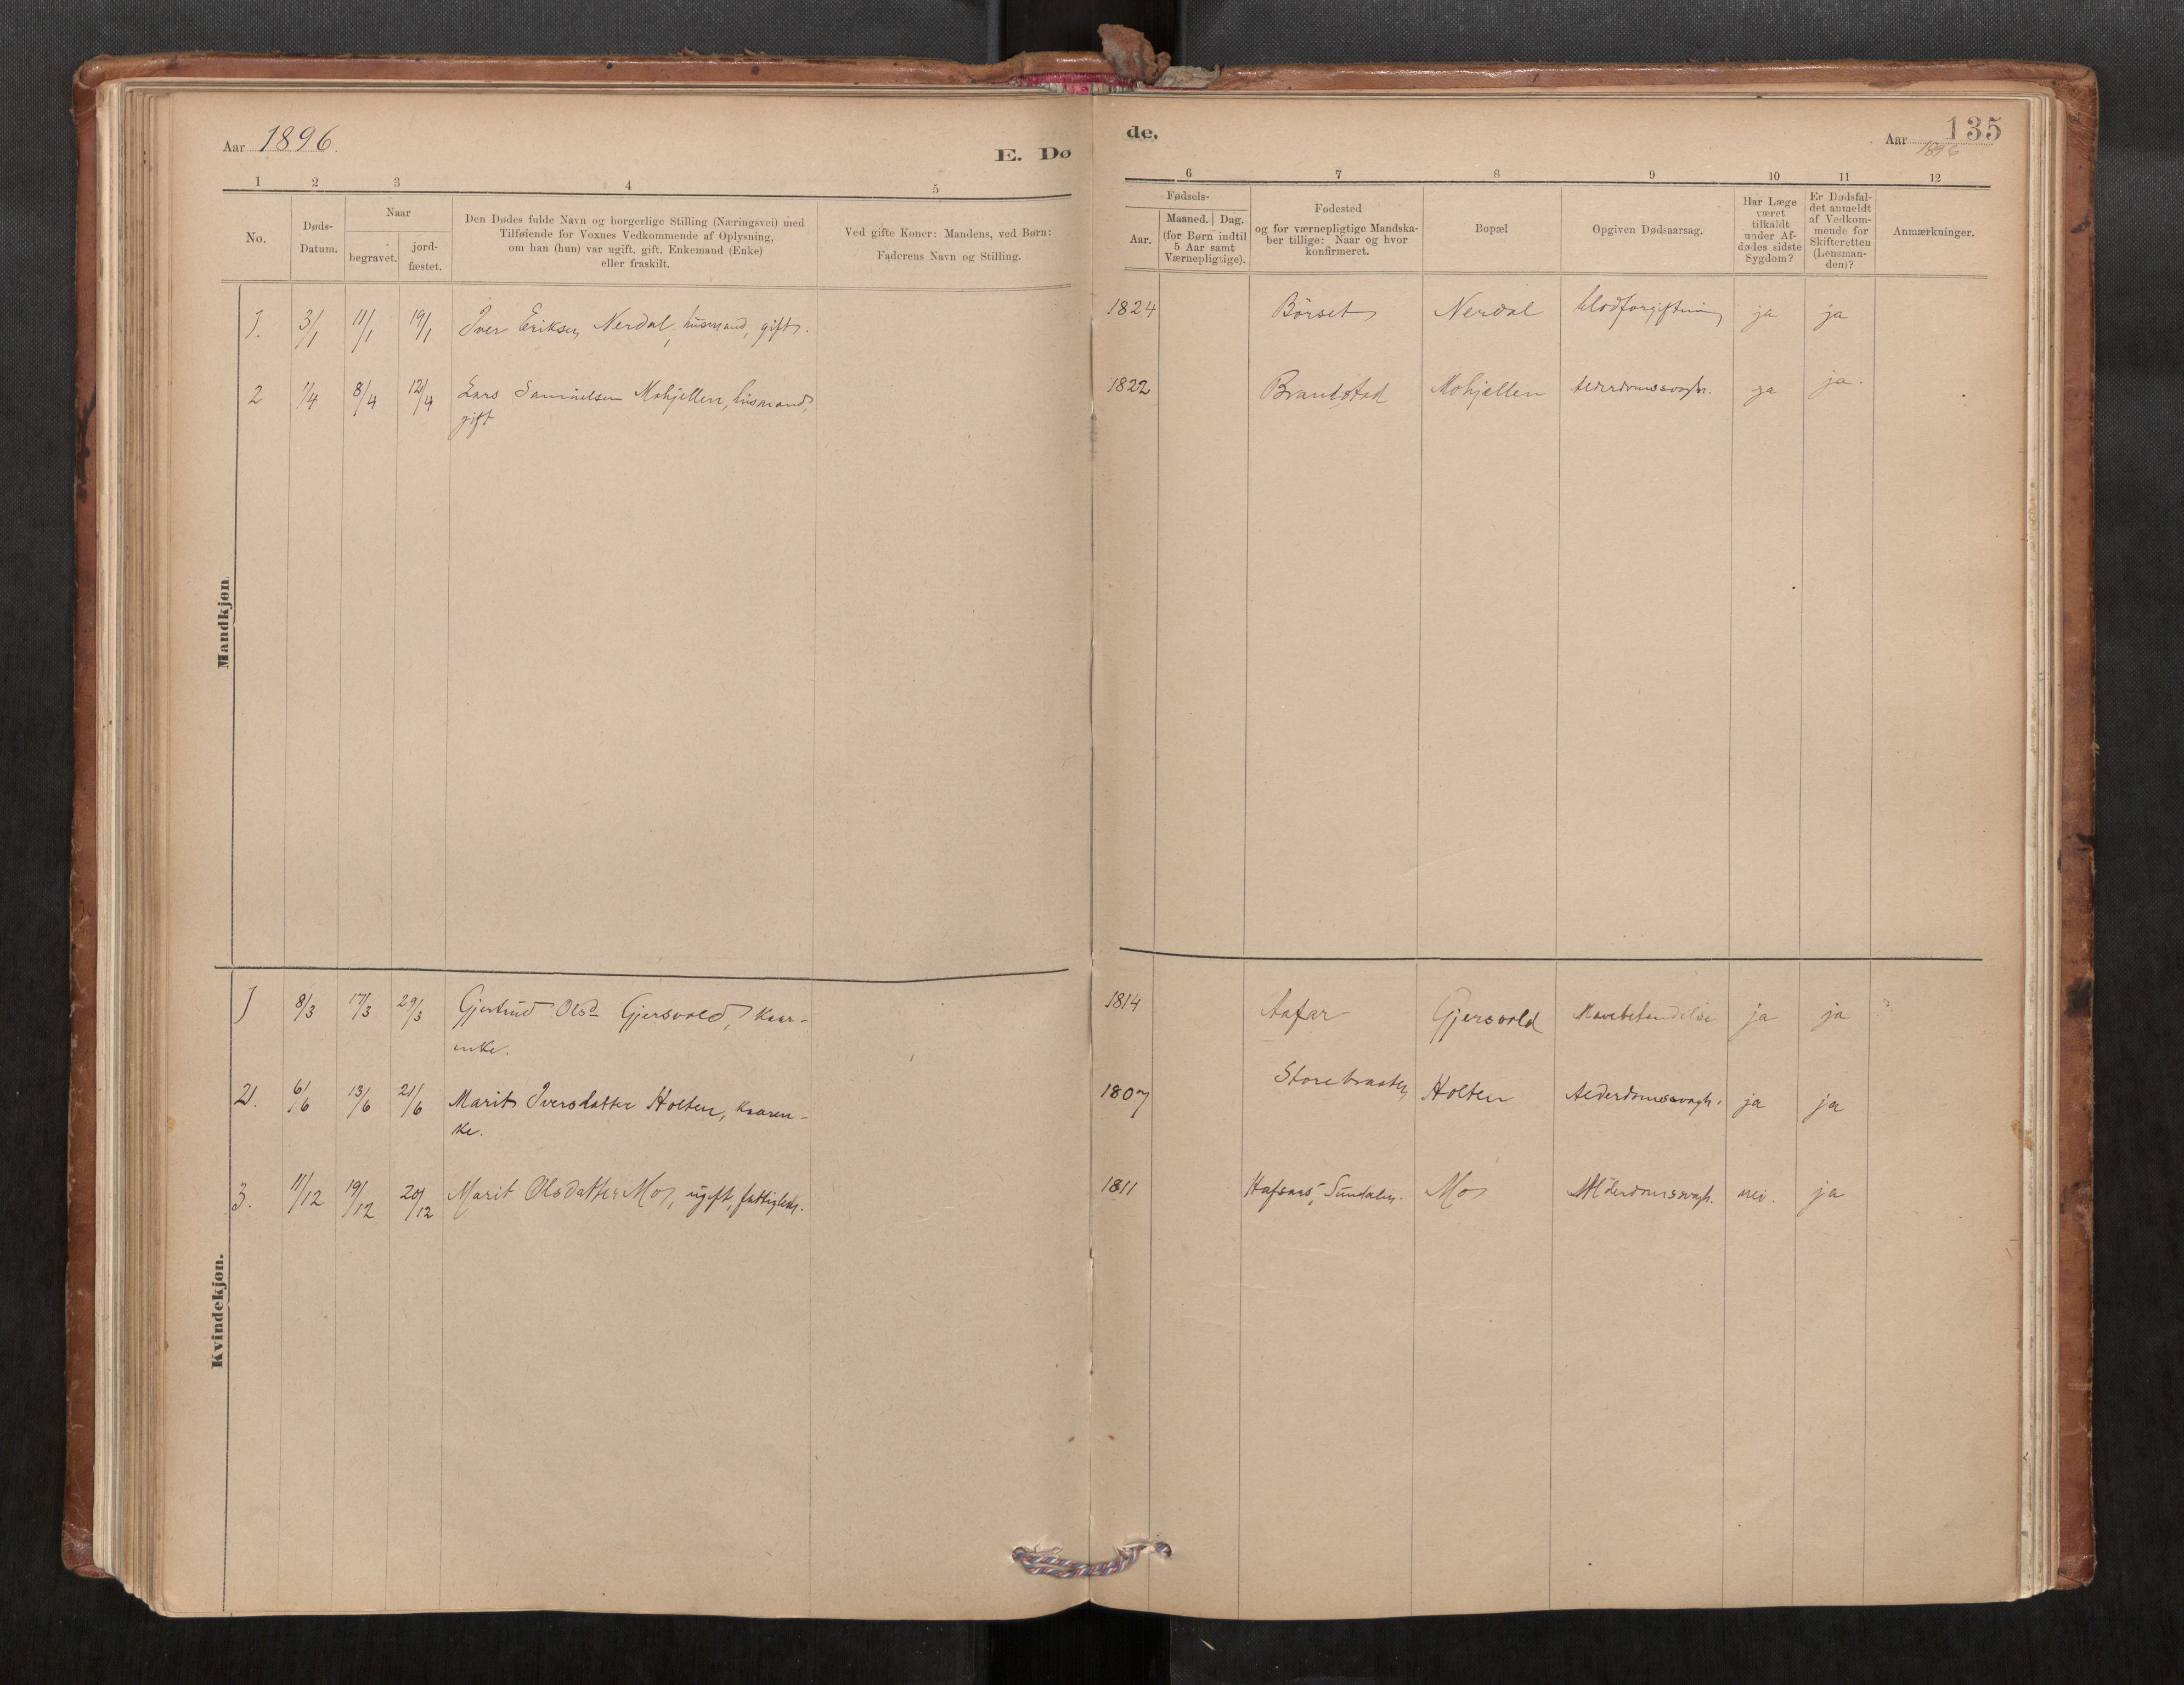 Aar 1896.
E. Dø
de.
Aar 1896
135
1 2 3 4 5
6 7 8 9 10 11 12
No.
Døds-
Datum.
Naar
begravet.
jord-
fæstet.
Den Dødes fulde Navn og borgerlige Stilling (Næringsvei) med
Tilføiende for Voxnes Vedkommende af Oplysning,
om han (hun) var ugift, gift, Enkemand (Enke)
eller fraskilt.
Ved gifte Koner: Mandens, ved Børn:
Faderens Navn og Stilling.
Fødsels-
Aar.
Maaned. Dag.
(for Børn indtil
5 Aar samt
Værnepligtige).
Fødested
og for værnepligtige Mandska-
ber tillige: Naar og hvor
konfirmeret.
Bopæl
Opgiven Dødsaarsag.
Har Læge
været
tilkaldt
under Af-
dødes sidste
Sygdom?
Er Dødsfal-
det anmeldt
af Vedkom-
mende for
Skifteretten
(Lensman-
den)?
Anmærkninger.
Mandkjøn.
1. 3/1 11/1 19/1 Iver Eriksen Nerdal, husmand, gift. 1824 Börset Nerdal blodforgiftning ja ja
2 1/4 8/4 12/4 Lars Samuelsen Mohjellen, husmand, 1822 Brandstad Mohjellen Alderdomssvagh. ja ja.
gift
Kvindekjøn.
1 8/3 17/3 29/3 Gjertrud Olsd Gjersvold, kaar- 1814 Aafar Gjersvold ja ja
enke.
2. 6/6 13/6 21/6 Marit Iversdatter Holten, kaaren- 1807 Storebraaten Holten Alderdomssvagh. ja ja
ke.
3. 11/12 19/12 20/12 Marit Olsdatter Mo, ugift, fattiglem. 1811 Hafsaas, Sundalen. Mo Alderdomssvagh. nei. ja